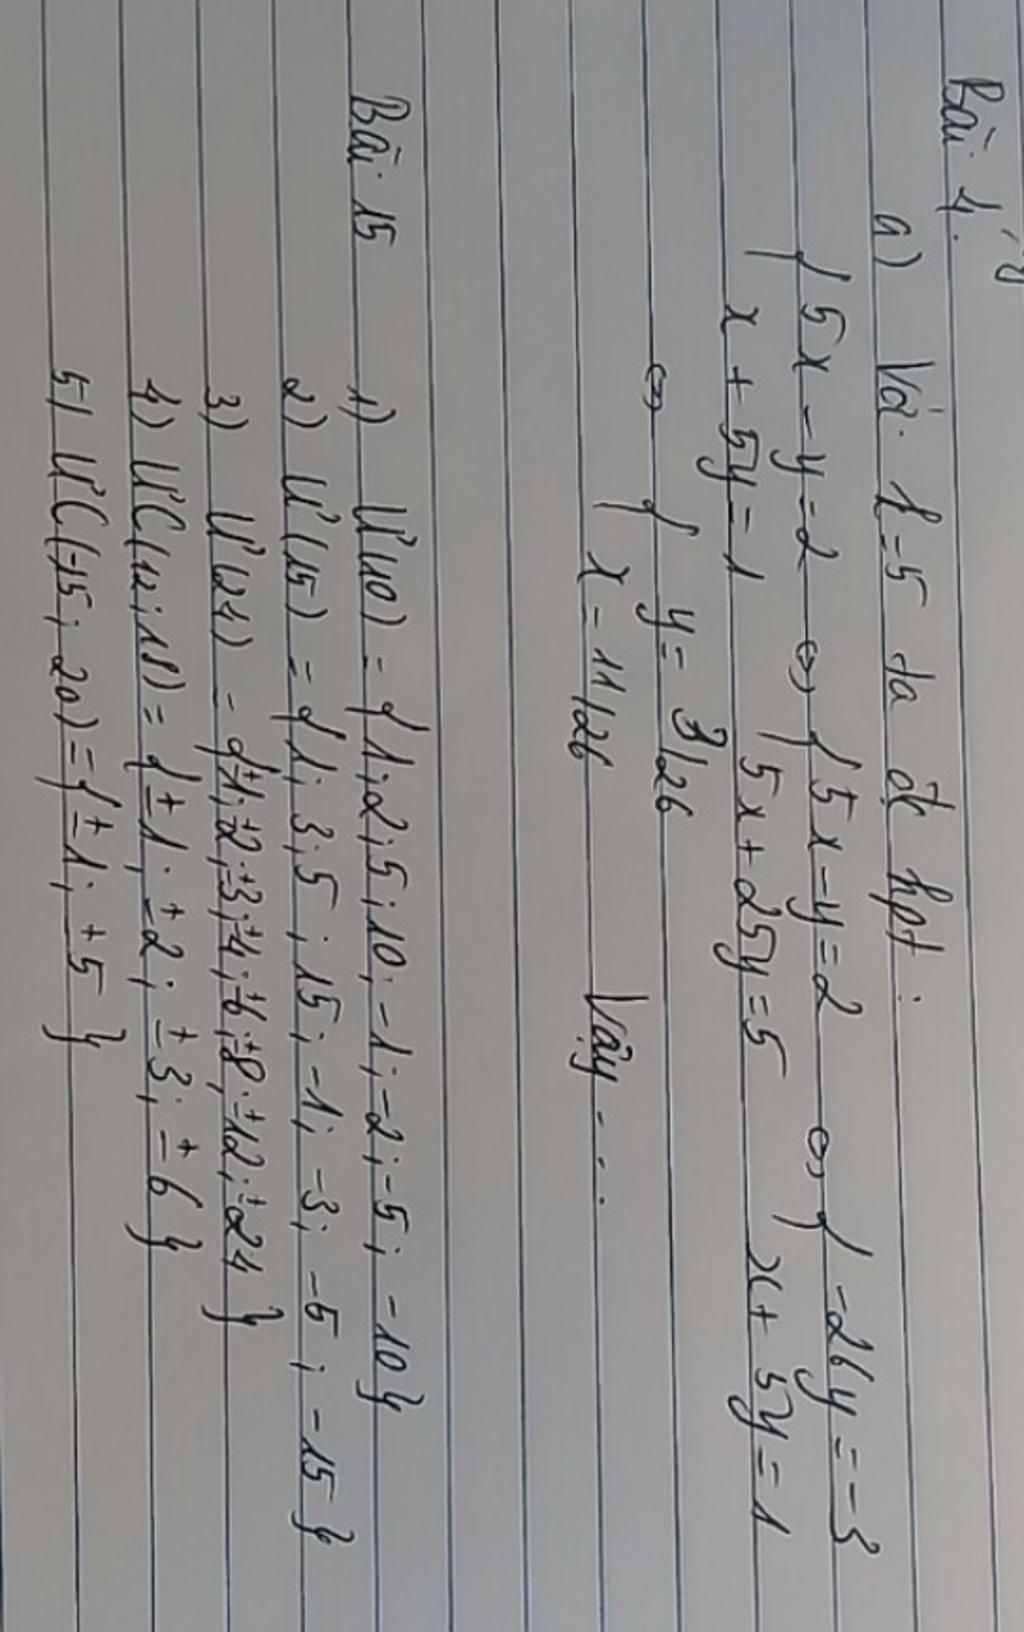 Bài 4.
a) Với k=5 ta đc hpt:
{ 5x - y = 2 ⇔ { 5x - y = 2 ⇔ { -26y = -3
x + 5y = 1 5x + 25y = 5 x + 5y = 1
⇔ { y = 3/26
x = 11/26 Vậy ....
Bài 15 1) Ư(10) = { 1; 2; 5; 10; -1; -2; -5; -10}
2) Ư(15) = { 1; 3; 5; 15; -1; -3; -5; -15}
3) Ư(24) = {±1; ±2; ±3; ±4; ±6; ±8; ±12; ±24}
4) ƯC(12; 18) = { ±1; ±2; ±3; ±6}
5) ƯC(-15; 20) = { ±1; ±5 }